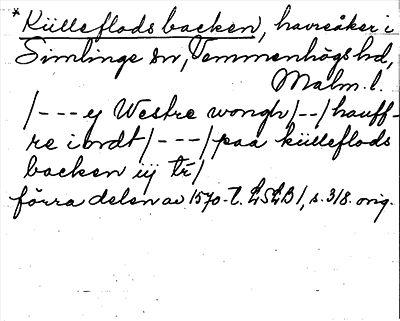 *Külleflods backen, havreåker i
Simlinge sn, Vemmenhögs hd,
Malm. l.
/--- y Westre wongh/--/hauff-
re i ordt/---/paa külleflods
backen iij tr/
förra delen av 1570-t. LSLB 1, s. 318. orig.